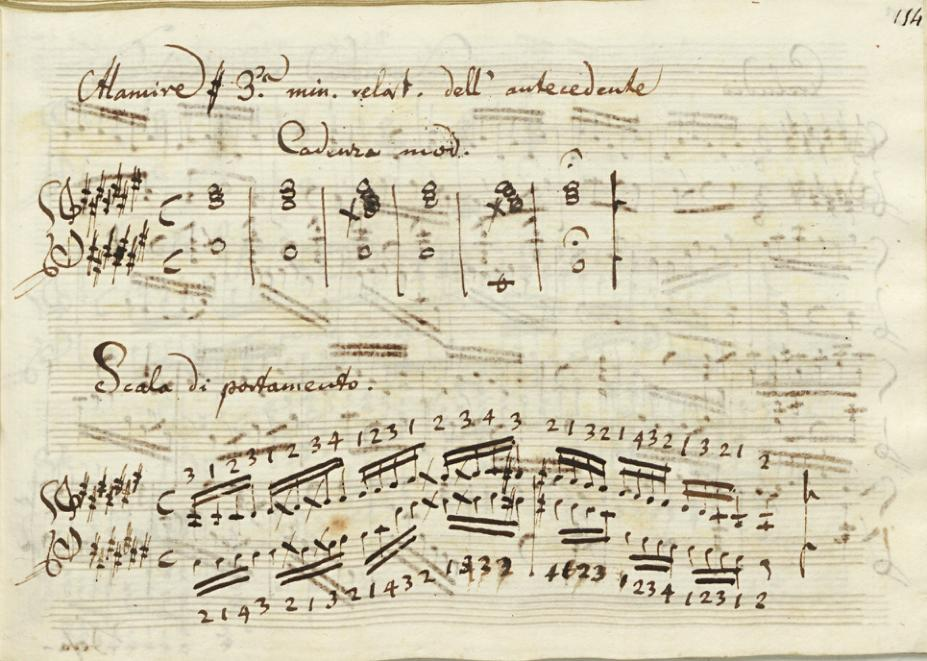 Alamire # 3.ª min. relat. dell' antecedente
Cadenza mod.
Scala di portamento.
3 1 2 3 1 2 3 4 1 2 3 1 2 3 4 3 2 1 3 2 1 4 3 2 1 3 2 1 2
2 1 4 3 2 1 3 2 1 4 3 2 1 3 2 1 2 3 1 2 3 4 1 2 3 1 2